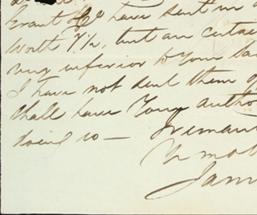 Grant & Co have sent in a
Worth 1/2, but an certai
very inferior to your la
I have not sent them of
shall have Your autho
doing so — I remain
Yr mo
Jam